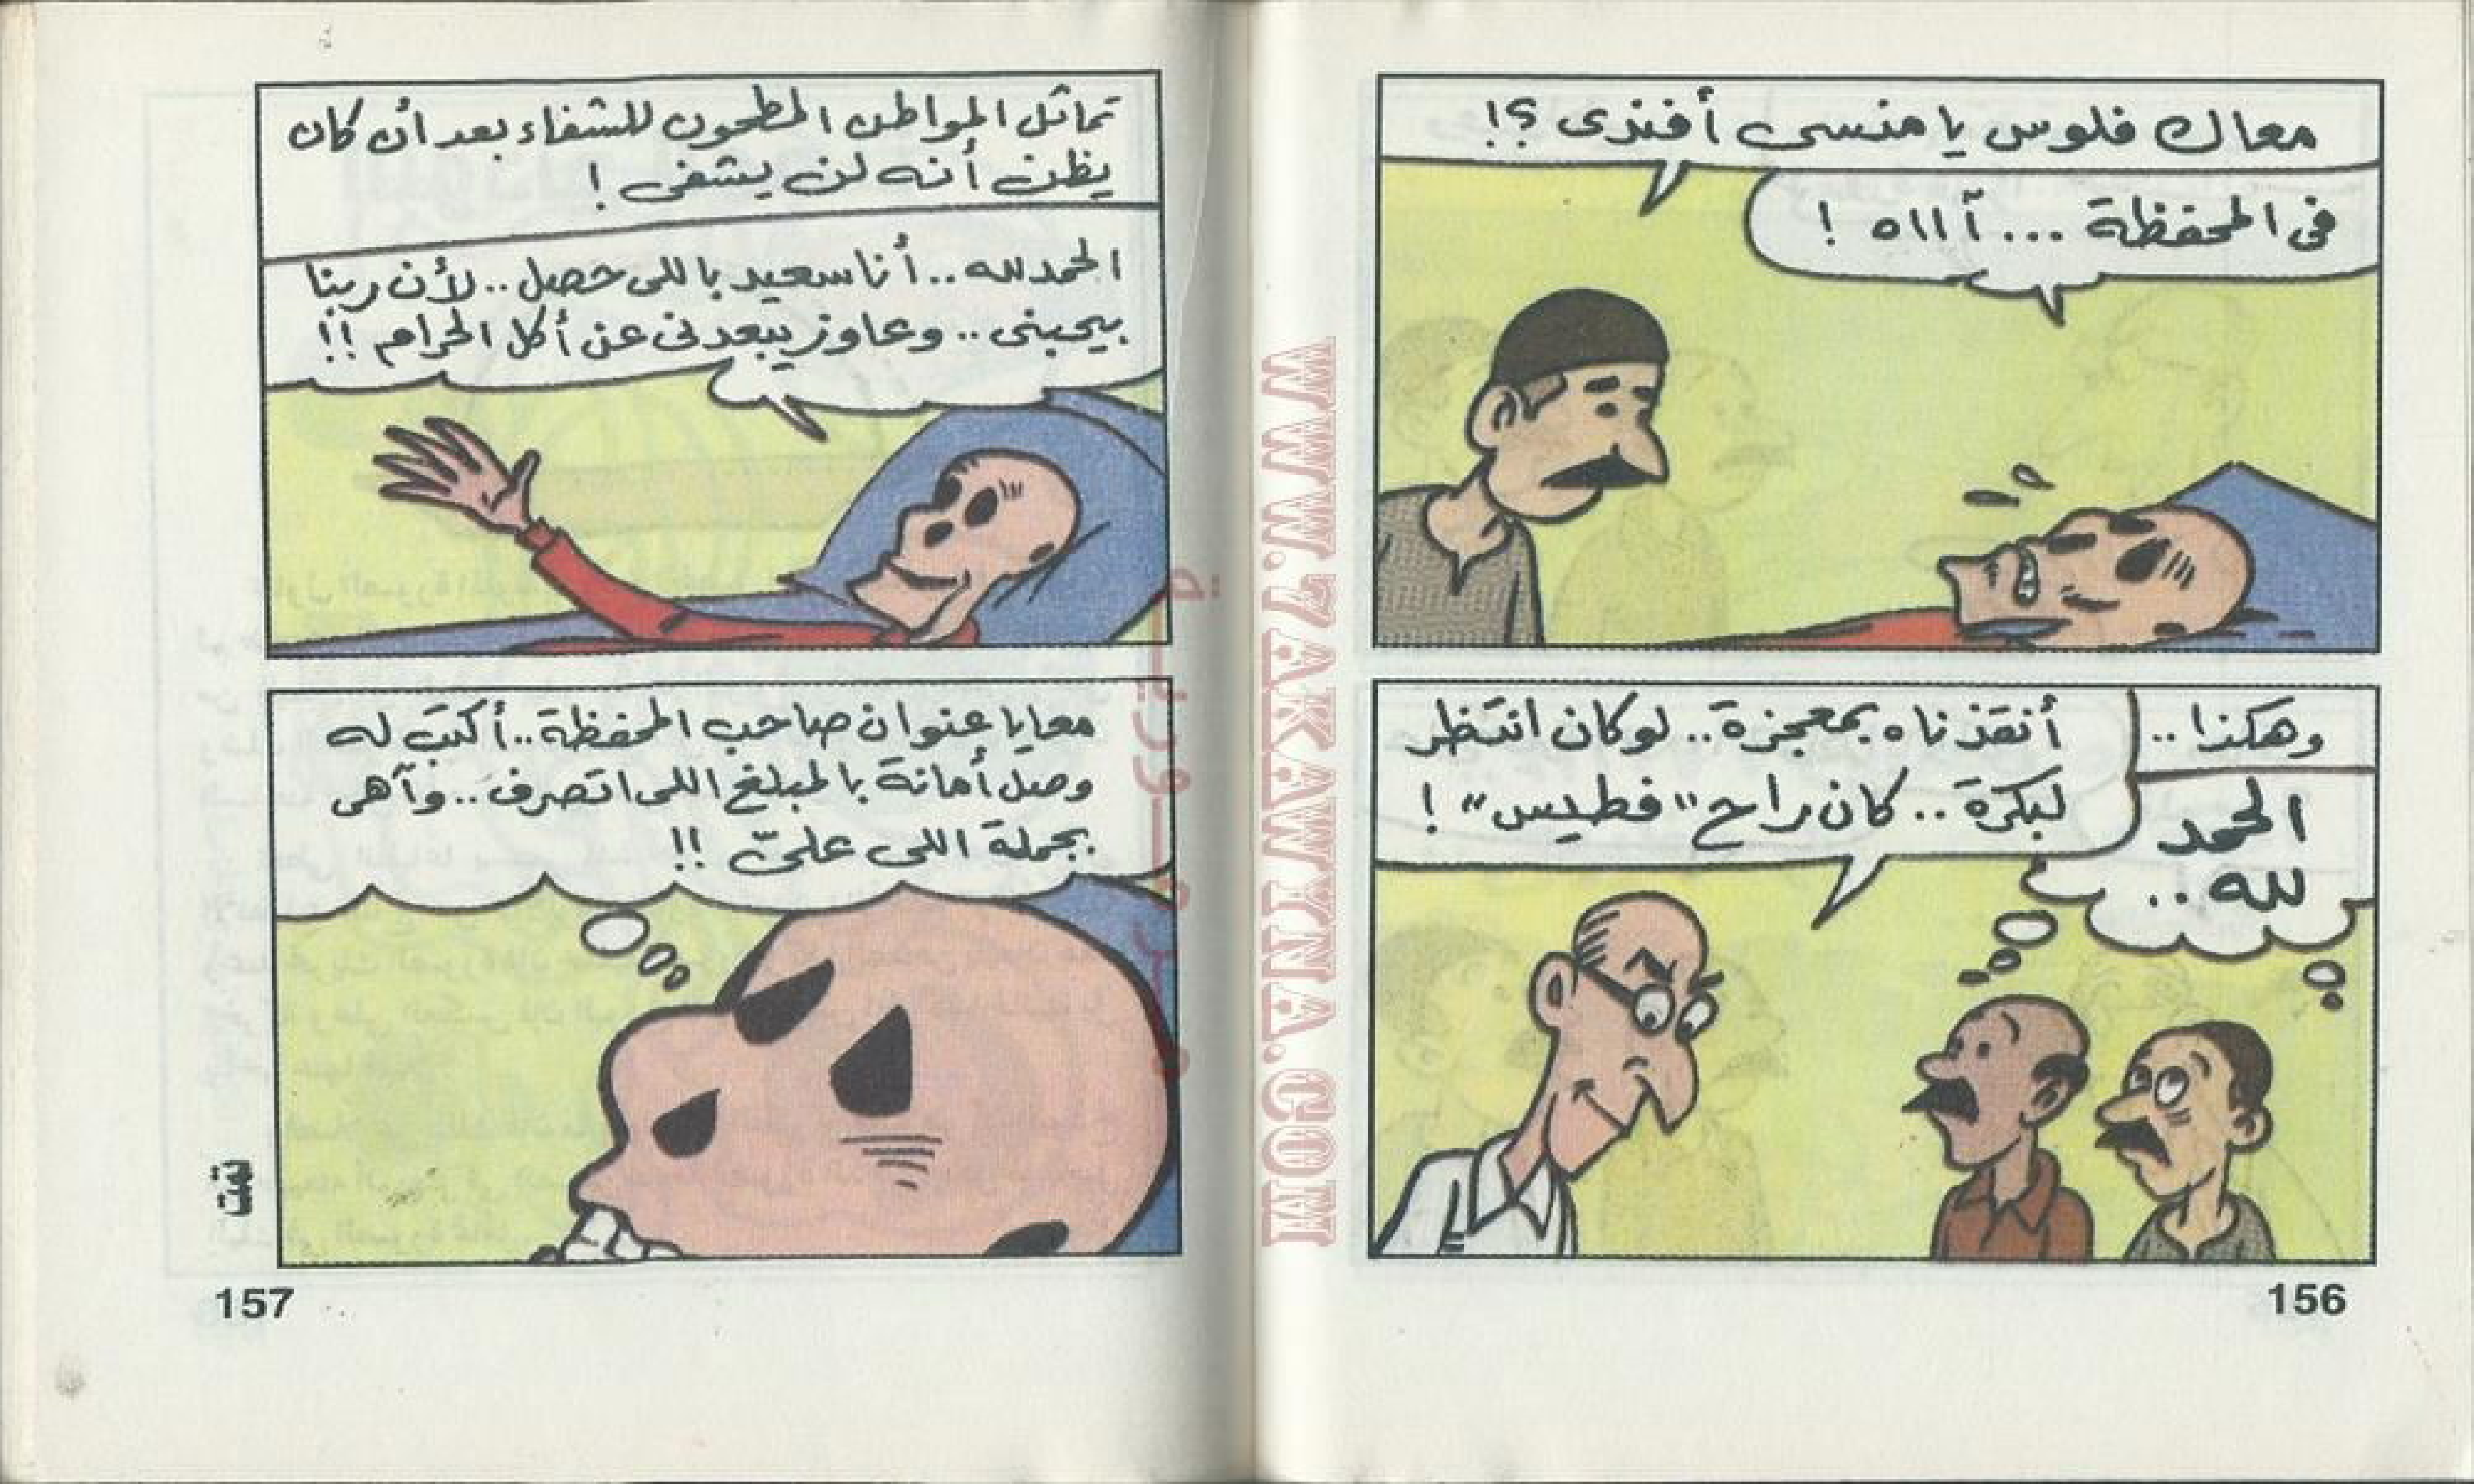 معاك فلوس يا منسى أفندى ؟!
فى المحفظة ... آااه !
وهكذا ..
أنقذناه بمعجزة .. لو كان انتظر
لبكرة .. كان راح "فطيس" !
الحمد
لله ..
156
تماثل المواطن المطحون للشفاء بعد أن كان
يظن أنه لن يشفى !
الحمد لله .. أنا سعيد باللى حصل .. لأن ربنا
بيحبنى .. وعاوز يبعدنى عن أكل الحرام !!
معايا عنوان صاحب المحفظة .. أكتب له
وصل أمانة بالمبلغ اللى اتصرف .. وآهى
بجملة اللى علىّ !!
تمت
157
WWW.ZAKAWINA.COM